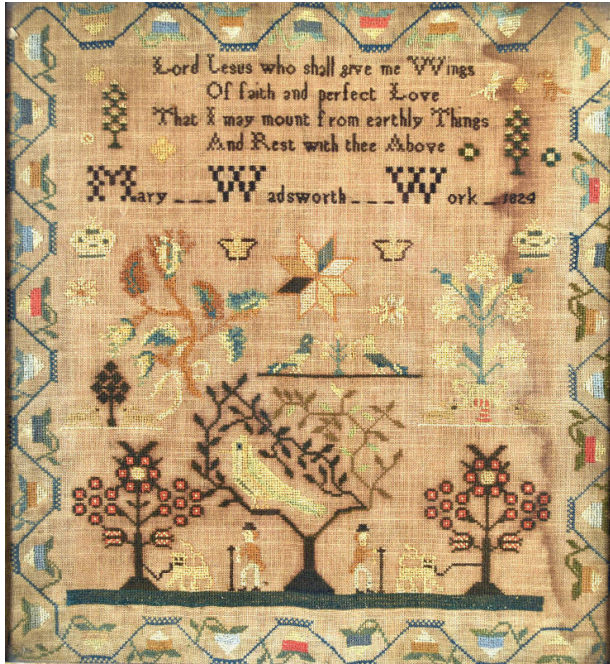 Lord Iesus who shall give me Wings
Of faith and perfect Love
That I may mount from earthly Things
And Rest with thee Above
Mary___Wadsworth___Work_1824